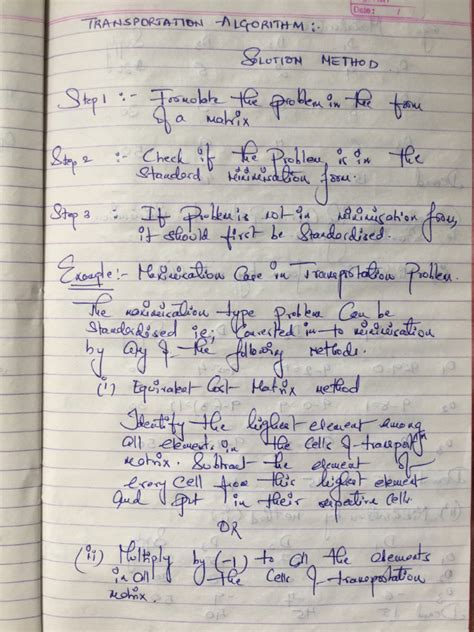 Date: /
TRANSPORTATION ALGORITHM:-
SOLUTION METHOD
Step 1 :- Formulate the problem in the form
of a matrix
Step 2 :- Check if the Problem is in the
Standard Minimisation form.
Step 3 : If Problem is not in Minimisation form,
it should first be Standardised.
Example:- Maximisation Case in Transportation Problem.
The maximisation type problem Can be
Standardised ie; Converted in-to minimisation
by any of the following methods.
(i) Equivalent Cost Matrix method
Identify the highest element among
all elements in the cells of transport
matrix. Subtract the element of
every cell from this highest element
and put in their respective cells.
OR
(ii) Multiply by (-1) to all the elements
in all the Cells of transportation
matrix.